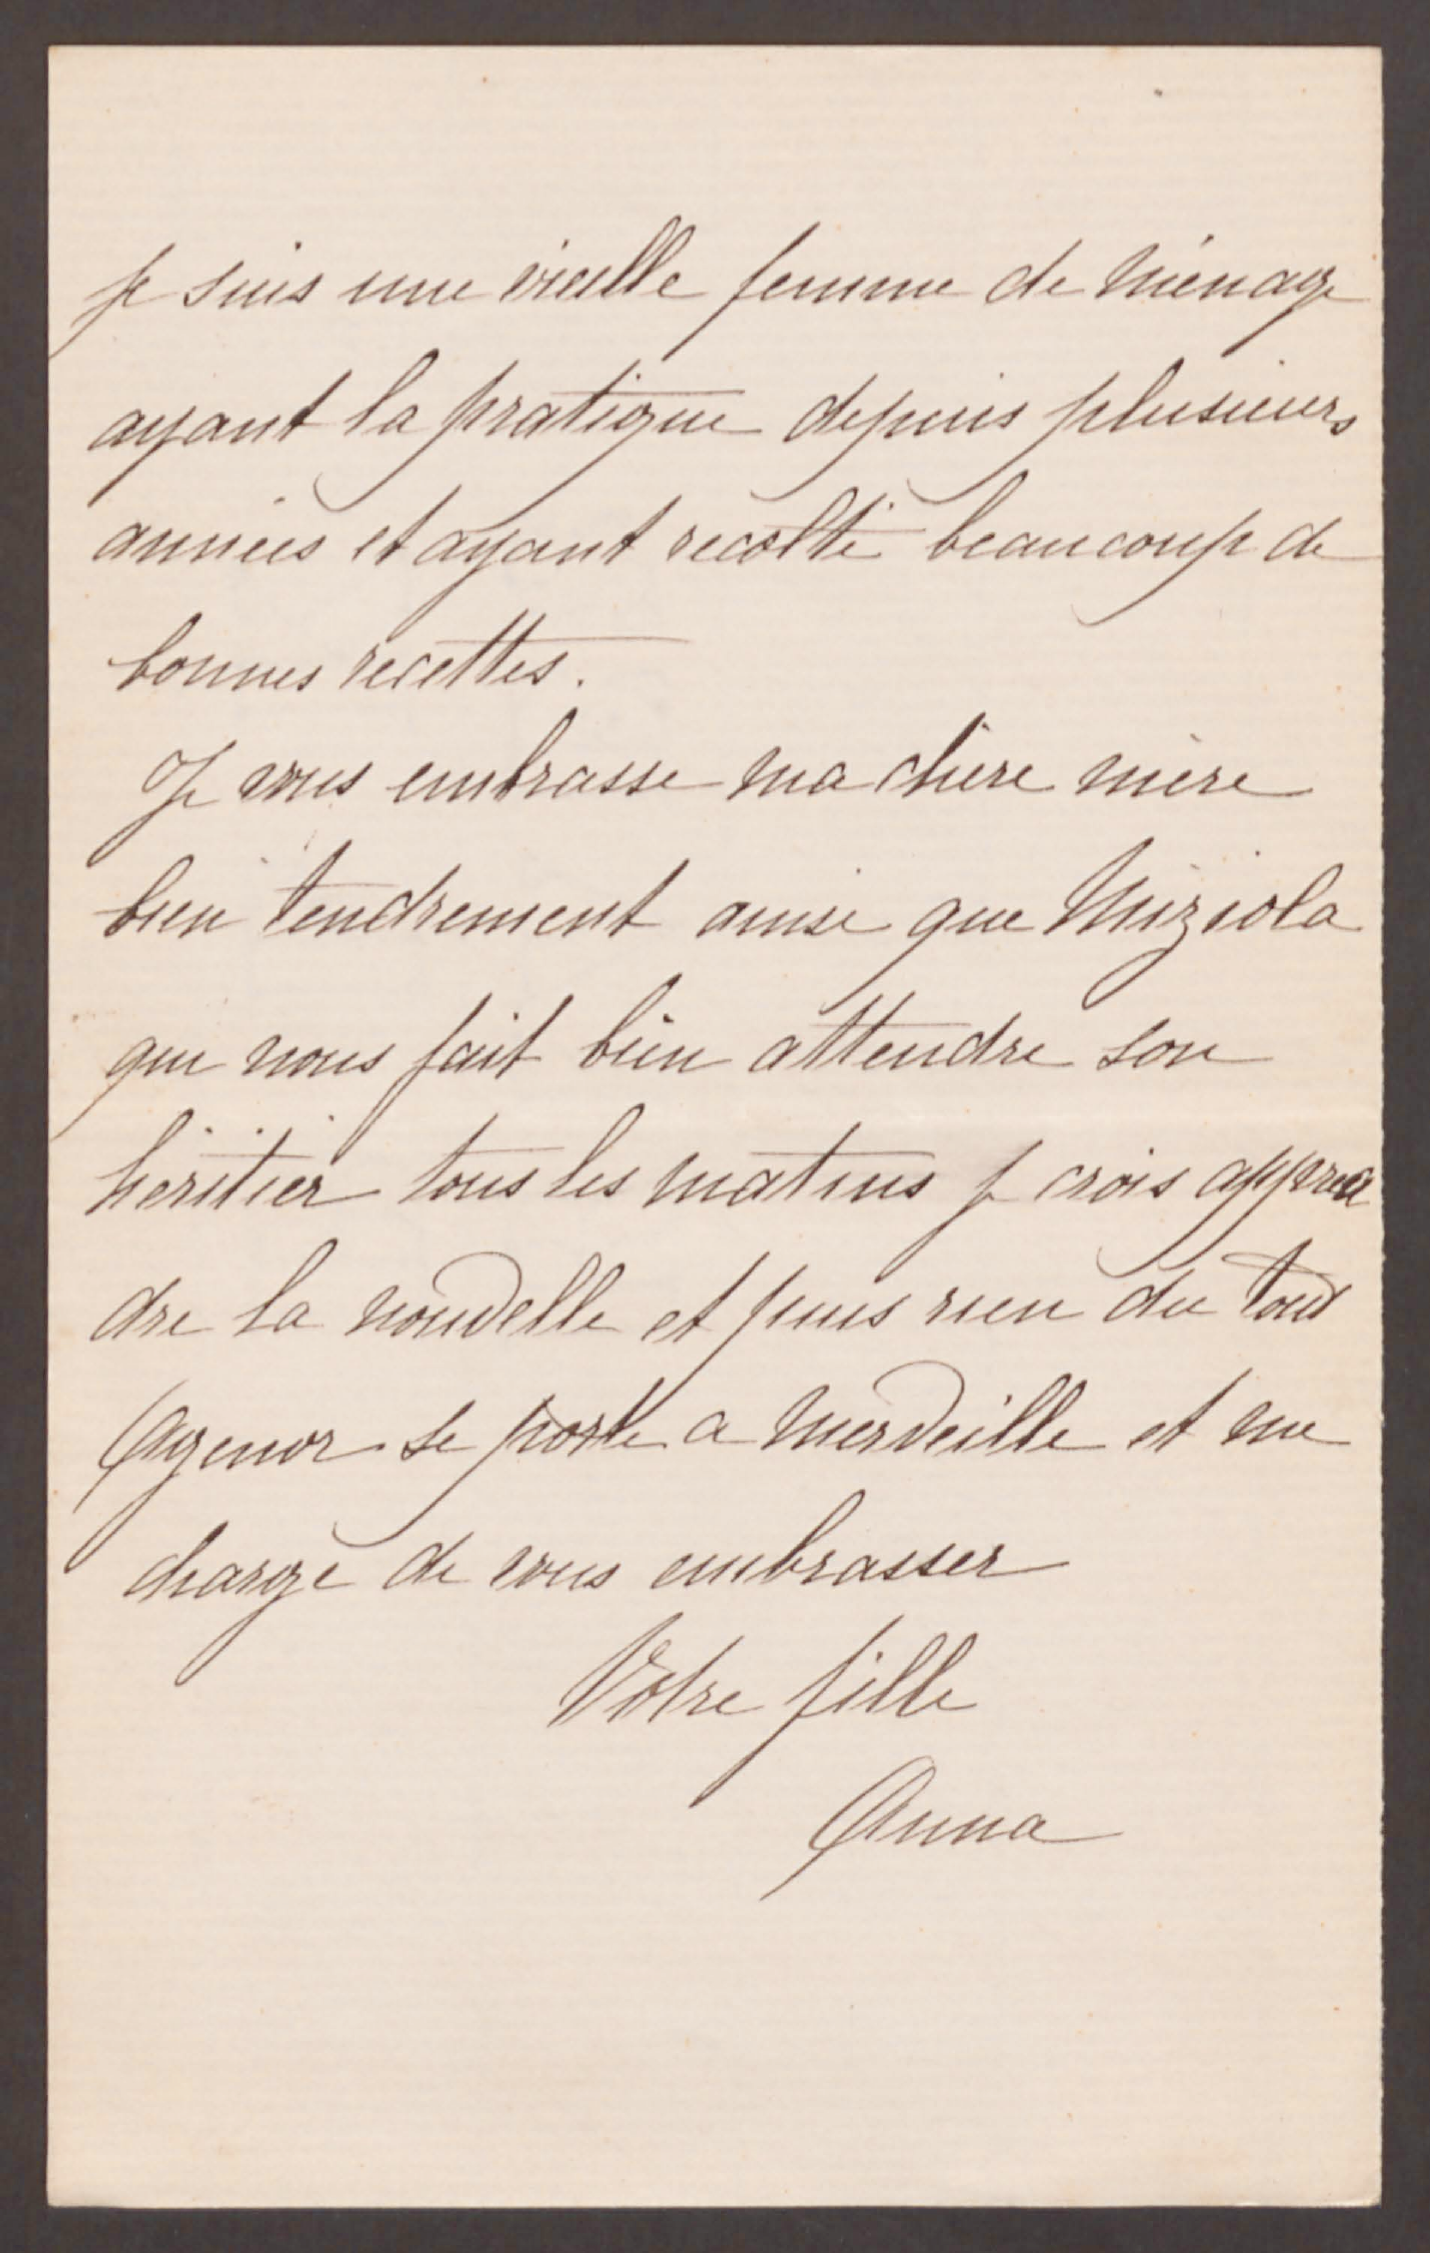 je suis une vieille femme de ménage
ayant la pratique depuis plusieurs
années et ayant recolté beaucoup de
bonnes recettes.
Je vous embrasse ma chère mère
bien tendrement ainsi que Miziola
qui nous fait bien attendre son
héritier tous les matins je crois appren
dre la nouvelle et puis rien du tout
Agenor se porte a merveille et me
charge de vous embrasser
Votre fille
Anna